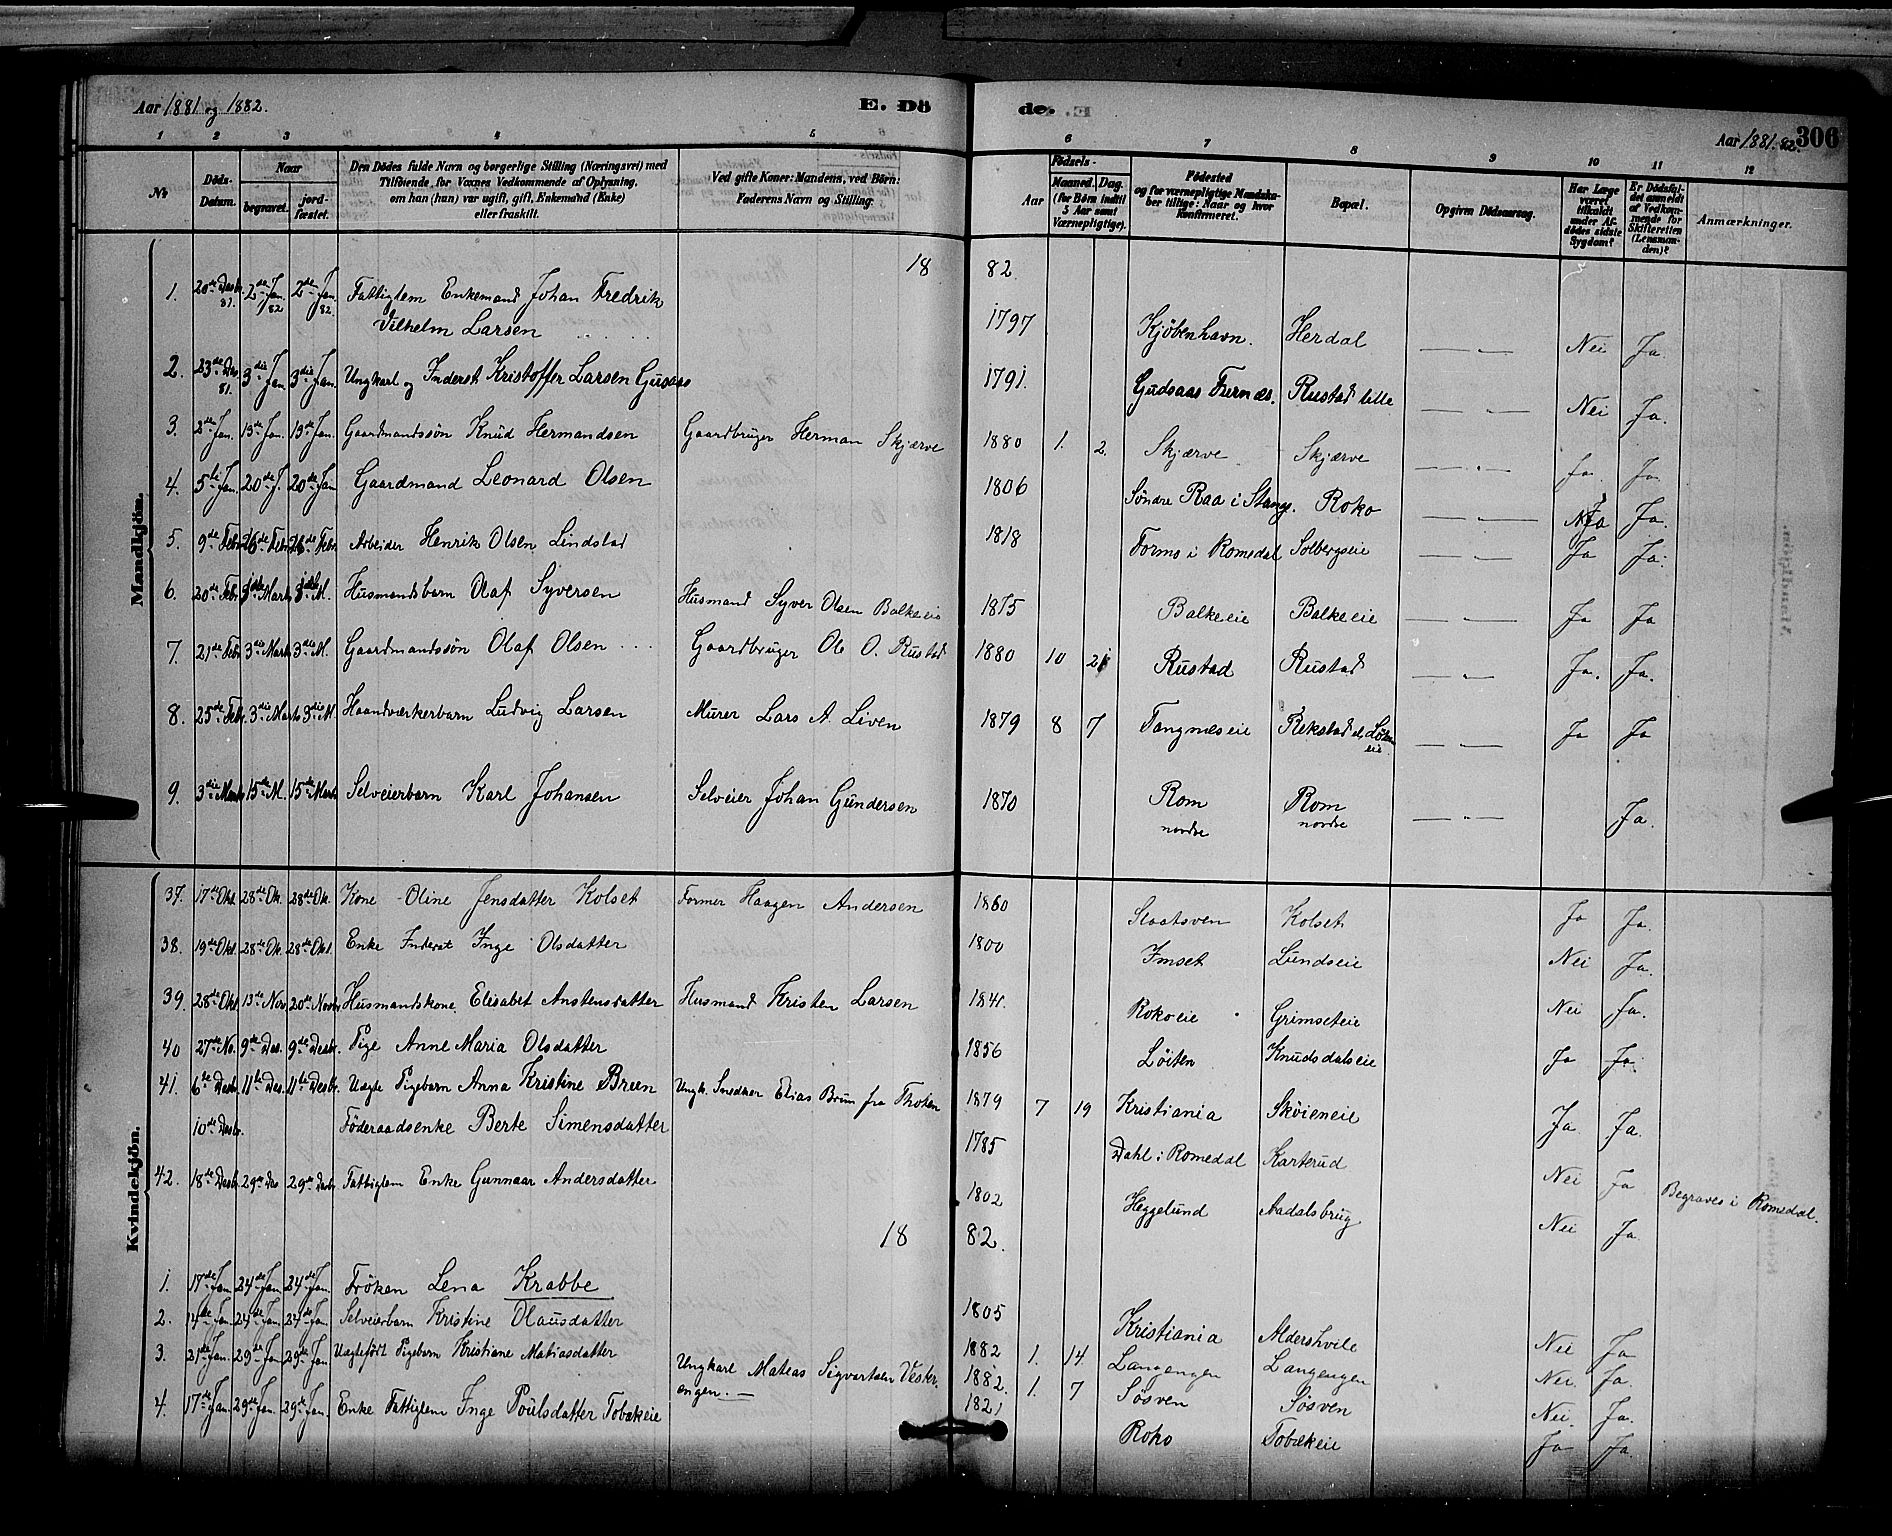 Aar 1881 og 1882. E. Dö de. Aar 1881.82. 306
1 2 3 4 5 6 7 8 9 10 11 12
No Döds-Datum. Naar begravet. jord-fæstet. Den Dödes fulde Navn og borgerlige Stilling (Næringsvei) med Tilföiende, for Voxnes Vedkommende af Oplysning, om han (hun) var ugift, gift, Enkemand (Enke) eller fraskilt. Ved gifte Koner: Mandens, ved Børn: Faderens Navn og Stilling. Aar Födsels- Maaned. Dag. (for Børn indtil 5 Aar samt Værnepligtige). Födested og for værnepligtige Mandskaber tillige: Naar og hvor Konfirmeret. Bopæl. Opgiven Dödsaarsag. Har Læge været tilkaldt under Afdödes sidste Sygdom? Er Dödsfaldet anmeldt af Vedkommende for Skifteretten (Lensmanden)? Anmærkninger.
Mandkjön.
18 82.
1. 20de Desbr. 81. 2den Jan. 82 2den Jan. 82. Fattiglem Enkemand Johan Fredrik
Vilhelm Larsen 1797 Kjöbenhavn. Herdal — „ — Nei Ja.
2. 23de Des. 81. 3die Jan. 3die Jan. Ungkarl og Inderst Kristoffer Larsen Gusaas 1791. Gudsaas Furnæs. Rustad lille — „ — Nei Ja.
3. 2den Jan. 13de Jan. 13de Jan. Gaardmandssön Knud Hermandsen Gaardbruger Herman Skjærve 1880 1. 2. Skjærve Skjærve — „ — Ja. Ja.
4. 5te Jan. 20de J. 20de Jan Gaardmand Leonard Olsen 1806 Söndre Raa i Stange. Roko — „ — Ja.
5. 9de Febr. 26de Febr. 26de Febr. Arbeider Henrik Olsen Lindstad 1818 Formo i Romedal Solbergseie — „ — Ja Ja.
6. 20de Febr. 3die Marts 3die M. Husmandsbarn Olaf Syversen Husmand Syver Olsen Balkeeie 1875 Balkeeie Balkeeie — „ — Ja Ja
7. 21de Febr. 3die Marts 3die M. Gaardmandssön Olaf Olsen Gaardbruger Ole O. Rustad 1880 10 21 Rustad Rustad — „ — Ja. Ja.
8. 25de Febr. 3die Marts 3die M. Haandværkerbarn Ludvig Larsen Murer Lars A. Liven 1879 8 7 Tangnæseie Rekstad
eie — „ — Ja Ja
9. 3die Marts 15de M. 15de Marts Selveierbarn Karl Johansen Selveier Johan Gundersen 1870 Rom Rom
nordre nordre — „ — Ja.
Kvindekjön.
37. 17de Okt. 28de Ok. 28de Ok. Kone Oline Jensdatter Kolset Former Haagen Andersen 1860 Staatsven Kolset Ja Ja.
38. 19de Okt. 28de Ok. 28de Okt. Enke Inderst Inge Olsdatter 1800 Imset Lundseie Nei Ja.
39. 28de Okt. 13de Nov. 20de Novbr. Husmandskone Elisabet Anstensdatter Husmand Kristen Larsen 1841. Rokoeie Grimseteie Nei Ja.
40 27de No. 9de Des. 9de Desbr. Pige Anne Maria Olsdatter 1856 Löiten Knudsdalseie Ja Ja.
41. 6te Desbr. 11te Des. 11te Desbr. Uægte Pigebarn Anna Kristine Bruun Ungk. Snedker Elias Brun fra Thoten 1879 7 19 Kristiania Sköieneie Ja. Ja.
10de Desbr. Föderaadsenke Berte Simensdatter 1785 Dahl i Romedal Karterud Nei Ja Begraves i Romedal.
42. 18de Desbr. 29de Des 29de Desbr. Fattiglem Enke Gunnaar Andersdatter 1802 Heggelund Aadalsbrug Nei Ja
18 82.
1. 17de Jan. 24de Jan. 24de Jan. Fröken Lena Krabbe 1805 Kristiania Aldershvile Nei Ja
2. 14de Jan. 24de Jan. 24de Jan. Selveierbarn Kristine Olausdatter 1882 1. 14. Langengen Langengen Nei. Ja.
3. 21de Jan. 29de Jan 29de Jan Uægtefödt Pigebarn Kristiane Matiasdatter Ungkarl Matias Sigvartsen Vestre
engen. — 1882. 1. 7 Sösven Sösven Nei. Ja.
4. 17de Jan. 29de Jan. 29de Jan. Enke Fattiglem Inge Poulsdatter Tobækeie 1821 Roko Tobækeie Ja Ja.